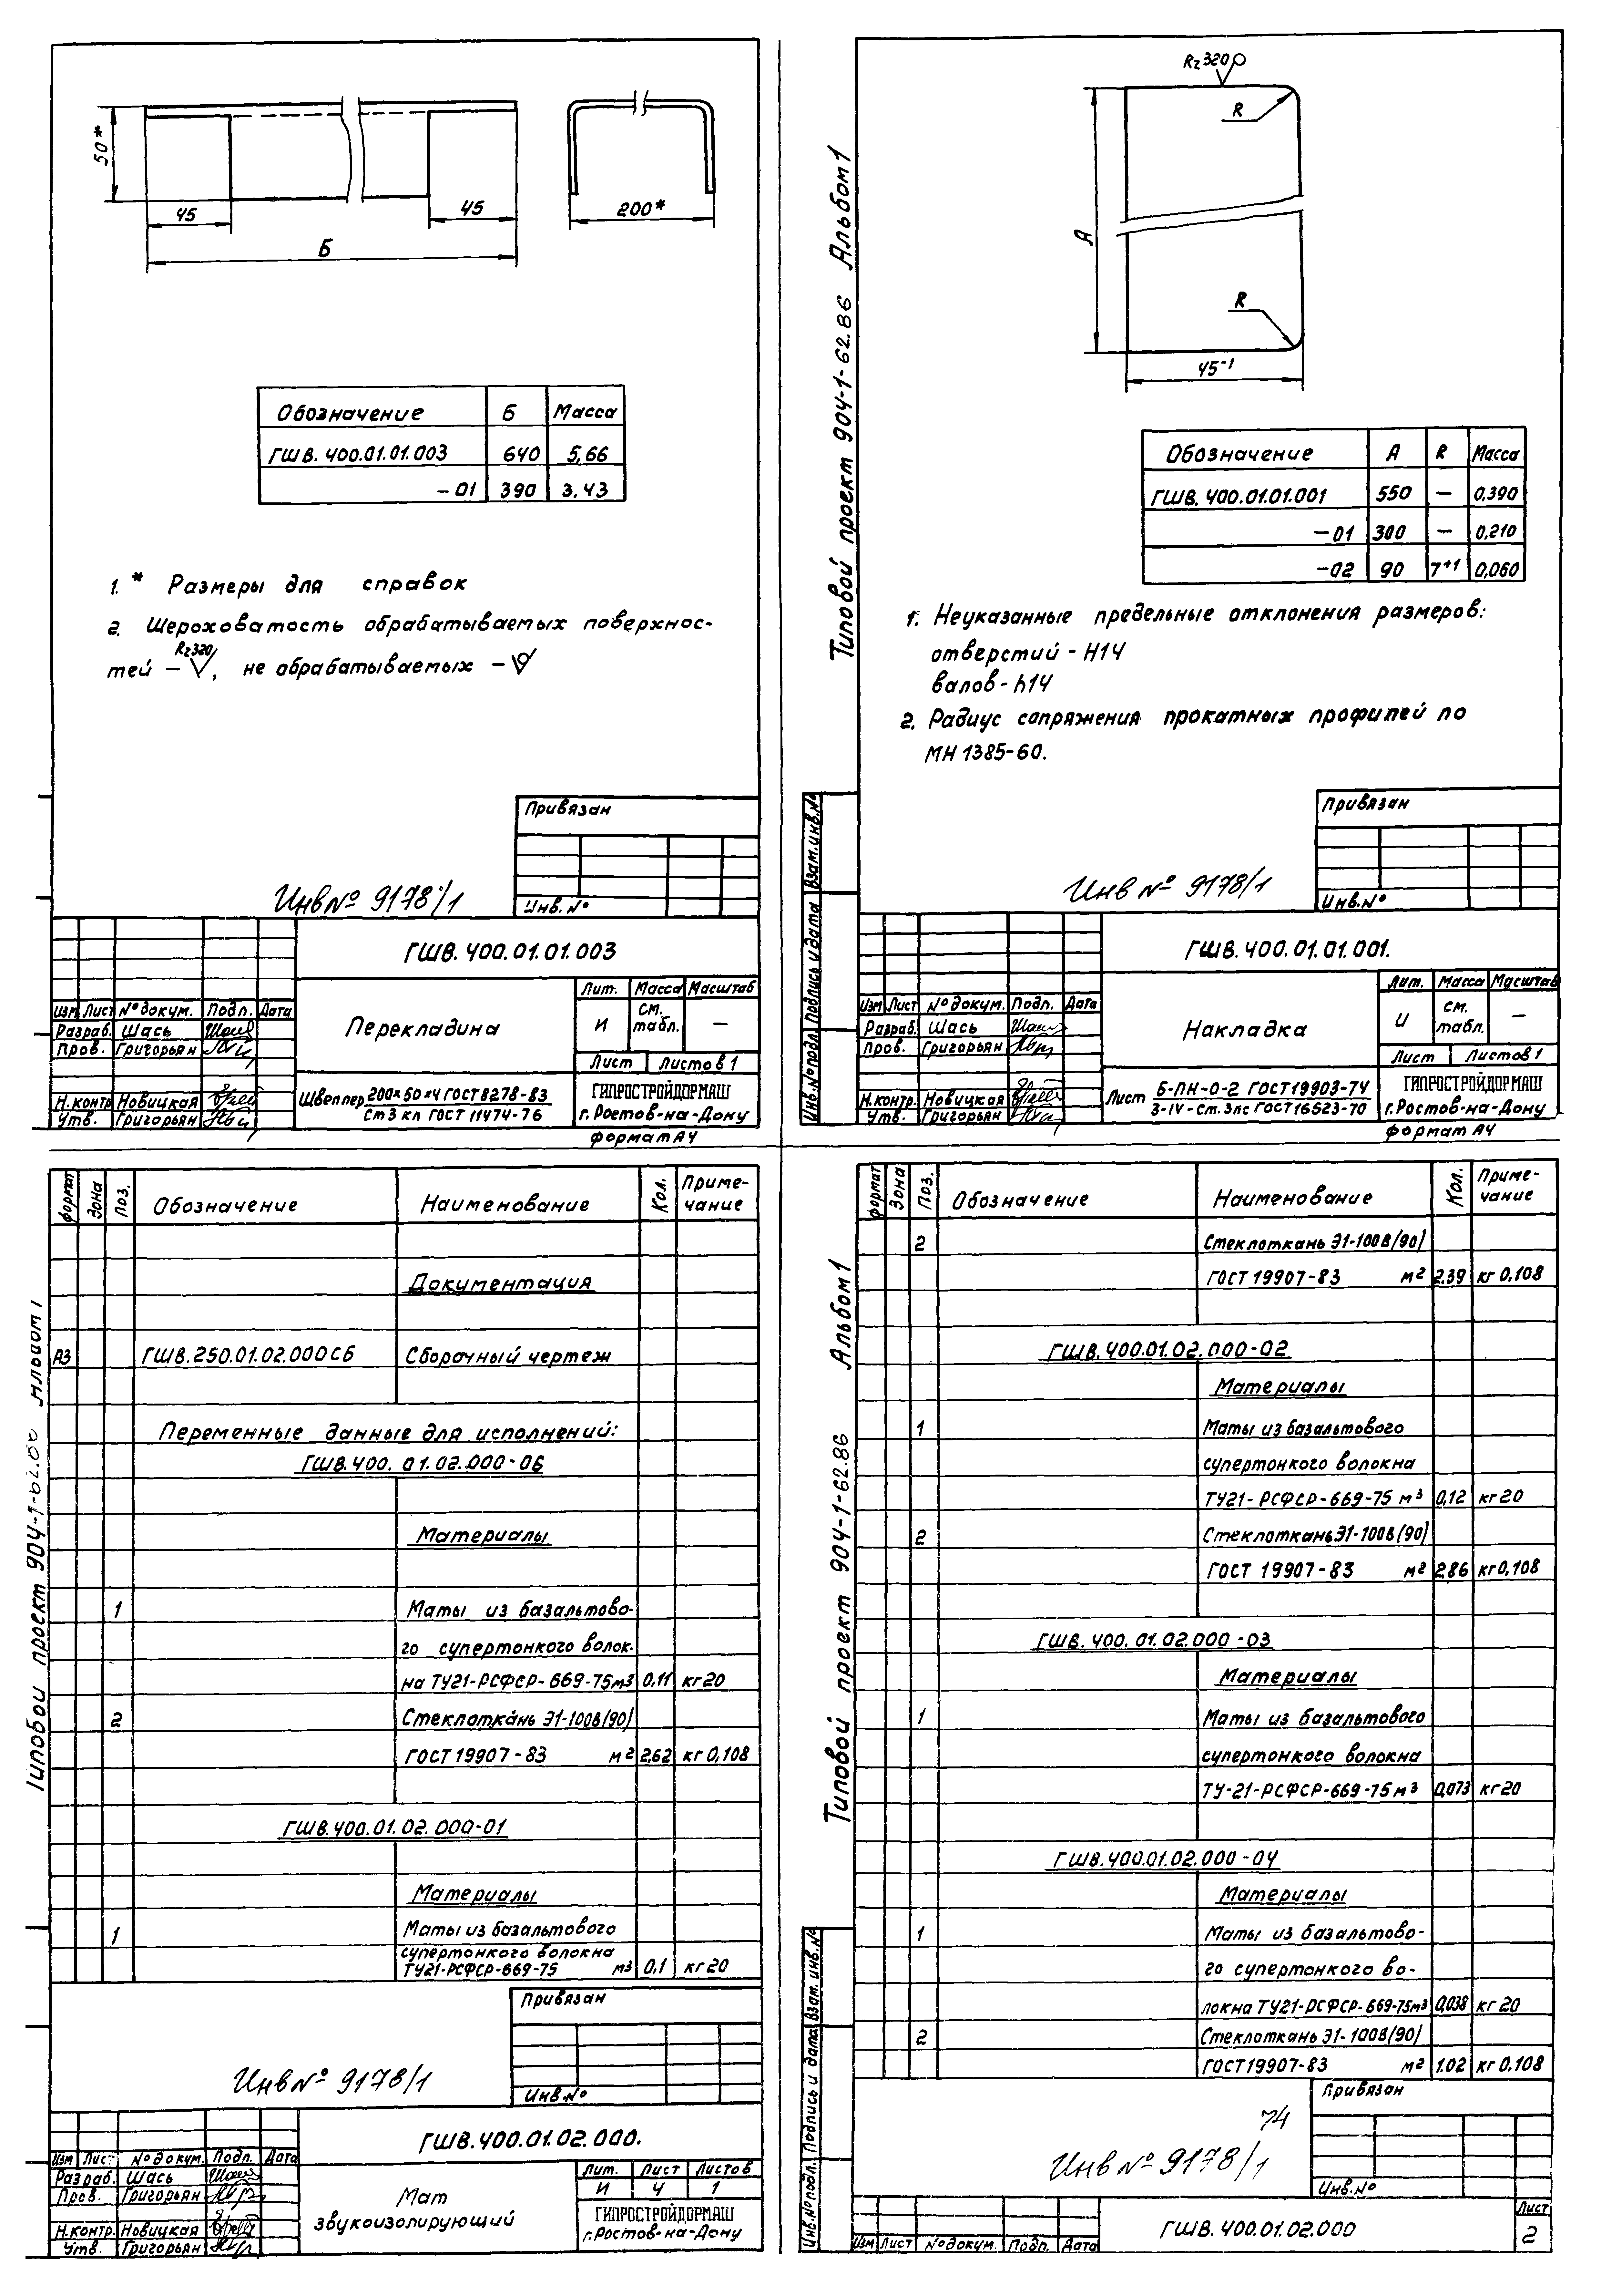 50*
45
45
Б
200*
Обозначение Б Масса
ГШВ.400.01.01.003 640 5,66
-01 390 3,43
1. * Размеры для справок
2. Шероховатость обрабатываемых поверхнос-
тей - Rz320, не обрабатываемых -
Привязан
Инв.№
Инв № 9178/1
ГШВ.400.01.01.003
Изм Лист № докум. Подп. Дата
Разраб. Шась
Пров. Григорьян
Н.контр. Новицкая
Утв. Григорьян
Перекладина
Лит. Масса Масштаб
И см. табл. —
Лист Листов 1
Швеллер 200×50×4 ГОСТ 8278-83
Ст3 кп ГОСТ 11474-76
ГИПРОСТРОЙДОРМАШ
г.Ростов-на-Дону
Формат А4
Типовой проект 904-1-62.86 Альбом 1
Rz320
R
A
R
45-1
Обозначение А R Масса
ГШВ.400.01.01.001 550 — 0,390
-01 300 — 0,210
-02 90 7+1 0,060
1. Неуказанные предельные отклонения размеров:
отверстий - Н14
валов - h14
2. Радиус сопряжения прокатных профилей по
МН 1385-60.
Привязан
Инв.№
Инв № 9178/1
Инв.№ подл. Подпись и дата Взам.инв.№
ГШВ.400.01.01.001.
Изм Лист № докум. Подп. Дата
Разраб. Шась
Пров. Григорьян
Н.контр. Новицкая
Утв. Григорьян
Накладка
Лит. Масса Масштаб
И см. табл. —
Лист Листов 1
Лист Б-ПН-О-2 ГОСТ 19903-74
3-IV-Ст.3пс ГОСТ 16523-70
ГИПРОСТРОЙДОРМАШ
г.Ростов-на-Дону
Формат А4
Типовой проект 904-1-62.86
Формат Зона Поз. Обозначение Наименование Кол. Приме-
чание
Документация
А3 ГШВ.250.01.02.000СБ Сборочный чертеж
Переменные данные для исполнений:
ГШВ.400.01.02.000-06
Материалы
1 Маты из базальтово-
го супертонкого волок-
на ТУ21-РСФСР-669-75 м3 0,11 кг 20
2 Стеклоткань Э1-100В(90)
ГОСТ 19907-83 м2 2.62 кг 0,108
ГШВ.400.01.02.000-01
Материалы
1 Маты из базальтового
супертонкого волокна
ТУ21-РСФСР-669-75 м3 0,1 кг 20
Привязан
Инв.№
Инв № 9178/1
ГШВ.400.01.02.000.
Изм Лист № докум. Подп. Дата
Разраб. Шась
Пров. Григорьян
Н.контр. Новицкая
Утв. Григорьян
Мат
звукоизолирующий
Лит. Лист Листов
И Ч 1
ГИПРОСТРОЙДОРМАШ
г.Ростов-на-Дону
Типовой проект 904-1-62.86 Альбом 1
Формат Зона Поз. Обозначение Наименование Кол. Приме-
чание
2 Стеклоткань Э1-100В(90)
ГОСТ 19907-83 м2 2.39 кг 0,108
ГШВ.400.01.02.000-02
Материалы
1 Маты из базальтового
супертонкого волокна
ТУ21-РСФСР-669-75 м3 0,12 кг 20
2 Стеклоткань Э1-100В(90)
ГОСТ 19907-83 м2 2.86 кг 0,108
ГШВ.400.01.02.000-03
Материалы
1 Маты из базальтового
супертонкого волокна
ТУ-21-РСФСР-669-75 м3 0,073 кг 20
ГШВ.400.01.02.000-04
Материалы
1 Маты из базальтово-
го супертонкого во-
локна ТУ21-РСФСР-669-75м3 0,038 кг 20
2 Стеклоткань Э1-100В(90)
ГОСТ 19907-83 м2 1.02 кг 0.108
Привязан
Инв.№
74
Инв № 9178/1
Инв.№ подл. Подпись и дата Взам.инв.№
Изм Лист № докум. Подп. Дата
ГШВ.400.01.02.000
Лист
2